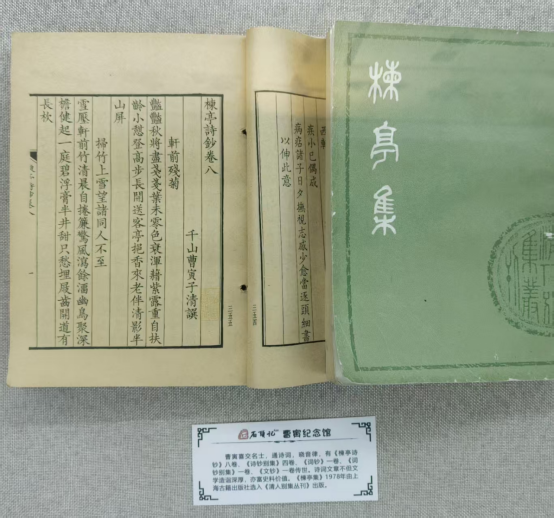 楝亭集
病痁諸子日夕撫視志感少愈當逐韻細書
以伸此意
楝亭詩鈔卷八
千山曹寅子清譔
軒前殘菊
豔豔秋將盡戔戔葉未零色衰渾藉紫露重自扶
齡小憩登高步長閒送客亭挹香來老伴清影半
山屏
掃竹上雪望諸同人不至
雪壓軒前竹清晨自捲簾驚風瀉餘滀幽鳥聚深
檐健起一庭碧浮膏半井甜只愁埋屐齒開道有
長杴
曹寅纪念馆
曹寅喜交名士，通诗词，晓音律，有《楝亭诗
钞》八卷、《诗钞别集》四卷、《词钞》一卷、《词
钞别集》一卷、《文钞》一卷传世。诗词文章不但文
学造诣深厚，亦富史料价值。《楝亭集》1978年由上
海古籍出版社选入《清人别集丛刊》出版。